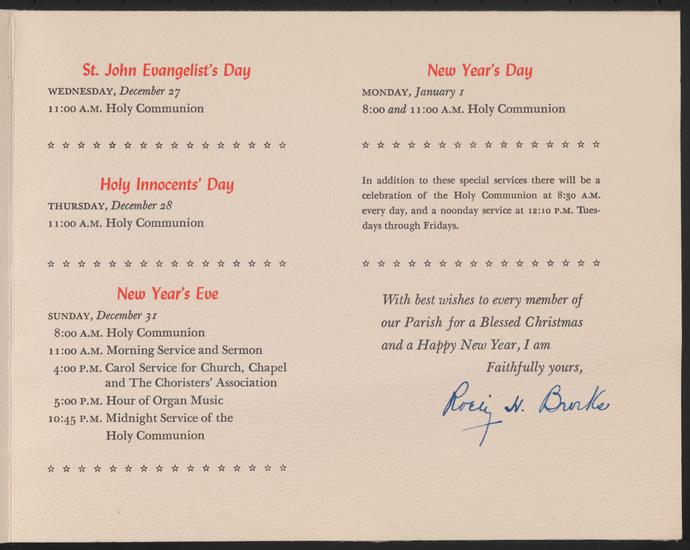 St. John Evangelist's Day
WEDNESDAY, December 27
11:00 A.M. Holy Communion
☆ ☆ ☆ ☆ ☆ ☆ ☆ ☆ ☆ ☆ ☆ ☆ ☆ ☆ ☆ ☆
Holy Innocents' Day
THURSDAY, December 28
11:00 A.M. Holy Communion
☆ ☆ ☆ ☆ ☆ ☆ ☆ ☆ ☆ ☆ ☆ ☆ ☆ ☆ ☆ ☆
New Year's Eve
SUNDAY, December 31
8:00 A.M. Holy Communion
11:00 A.M. Morning Service and Sermon
4:00 P.M. Carol Service for Church, Chapel
and The Choristers' Association
5:00 P.M. Hour of Organ Music
10:45 P.M. Midnight Service of the
Holy Communion
☆ ☆ ☆ ☆ ☆ ☆ ☆ ☆ ☆ ☆ ☆ ☆ ☆ ☆ ☆ ☆
New Year's Day
MONDAY, January 1
8:00 and 11:00 A.M. Holy Communion
☆ ☆ ☆ ☆ ☆ ☆ ☆ ☆ ☆ ☆ ☆ ☆ ☆ ☆ ☆ ☆
In addition to these special services there will be a
celebration of the Holy Communion at 8:30 A.M.
every day, and a noonday service at 12:10 P.M. Tues-
days through Fridays.
☆ ☆ ☆ ☆ ☆ ☆ ☆ ☆ ☆ ☆ ☆ ☆ ☆ ☆ ☆ ☆
With best wishes to every member of
our Parish for a Blessed Christmas
and a Happy New Year, I am
Faithfully yours,
H. Brooks